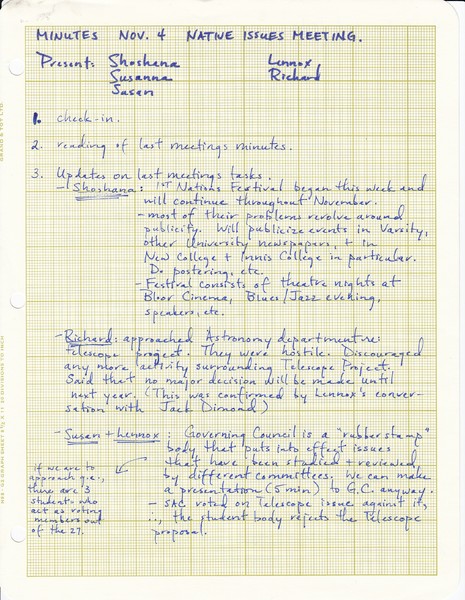 MINUTES NOV. 4 NATIVE ISSUES MEETING.
Present: Shoshana Lennox
Susanna Richard
Susan
1. check-in.
2. reading of last meetings minutes.
3. Updates on last meetings tasks.
- Shoshana: 1st Nations Festival began this week and
will continue throughout November.
- most of their problems revolve around
publicity. Will publicize events in Varsity,
other University newspapers, + in
New College + Innis College in particular.
Do postering, etc.
- Festival consists of theatre nights at
Bloor Cinema, Blues/Jazz evening,
speakers, etc.
- Richard: approached Astronomy department re:
telescope project. They were hostile. Discouraged
any more activity surrounding Telescope Project.
Said that no major decision will be made until
next year. (This was confirmed by Lennox's conver-
sation with Jack Dimond)
- Susan + Lennox: Governing Council is a "rubber stamp"
body that puts into effect issues
that have been studied + reviewed
by different committees. We can make
a presentation (5 min) to G.C. anyway.
- SAC voted on Telescope issue against it,
∴, the student body rejects the Telescope
proposal.
if we are to
approach g.c.,
there are 3
students who
act as voting
members out
of the 27.